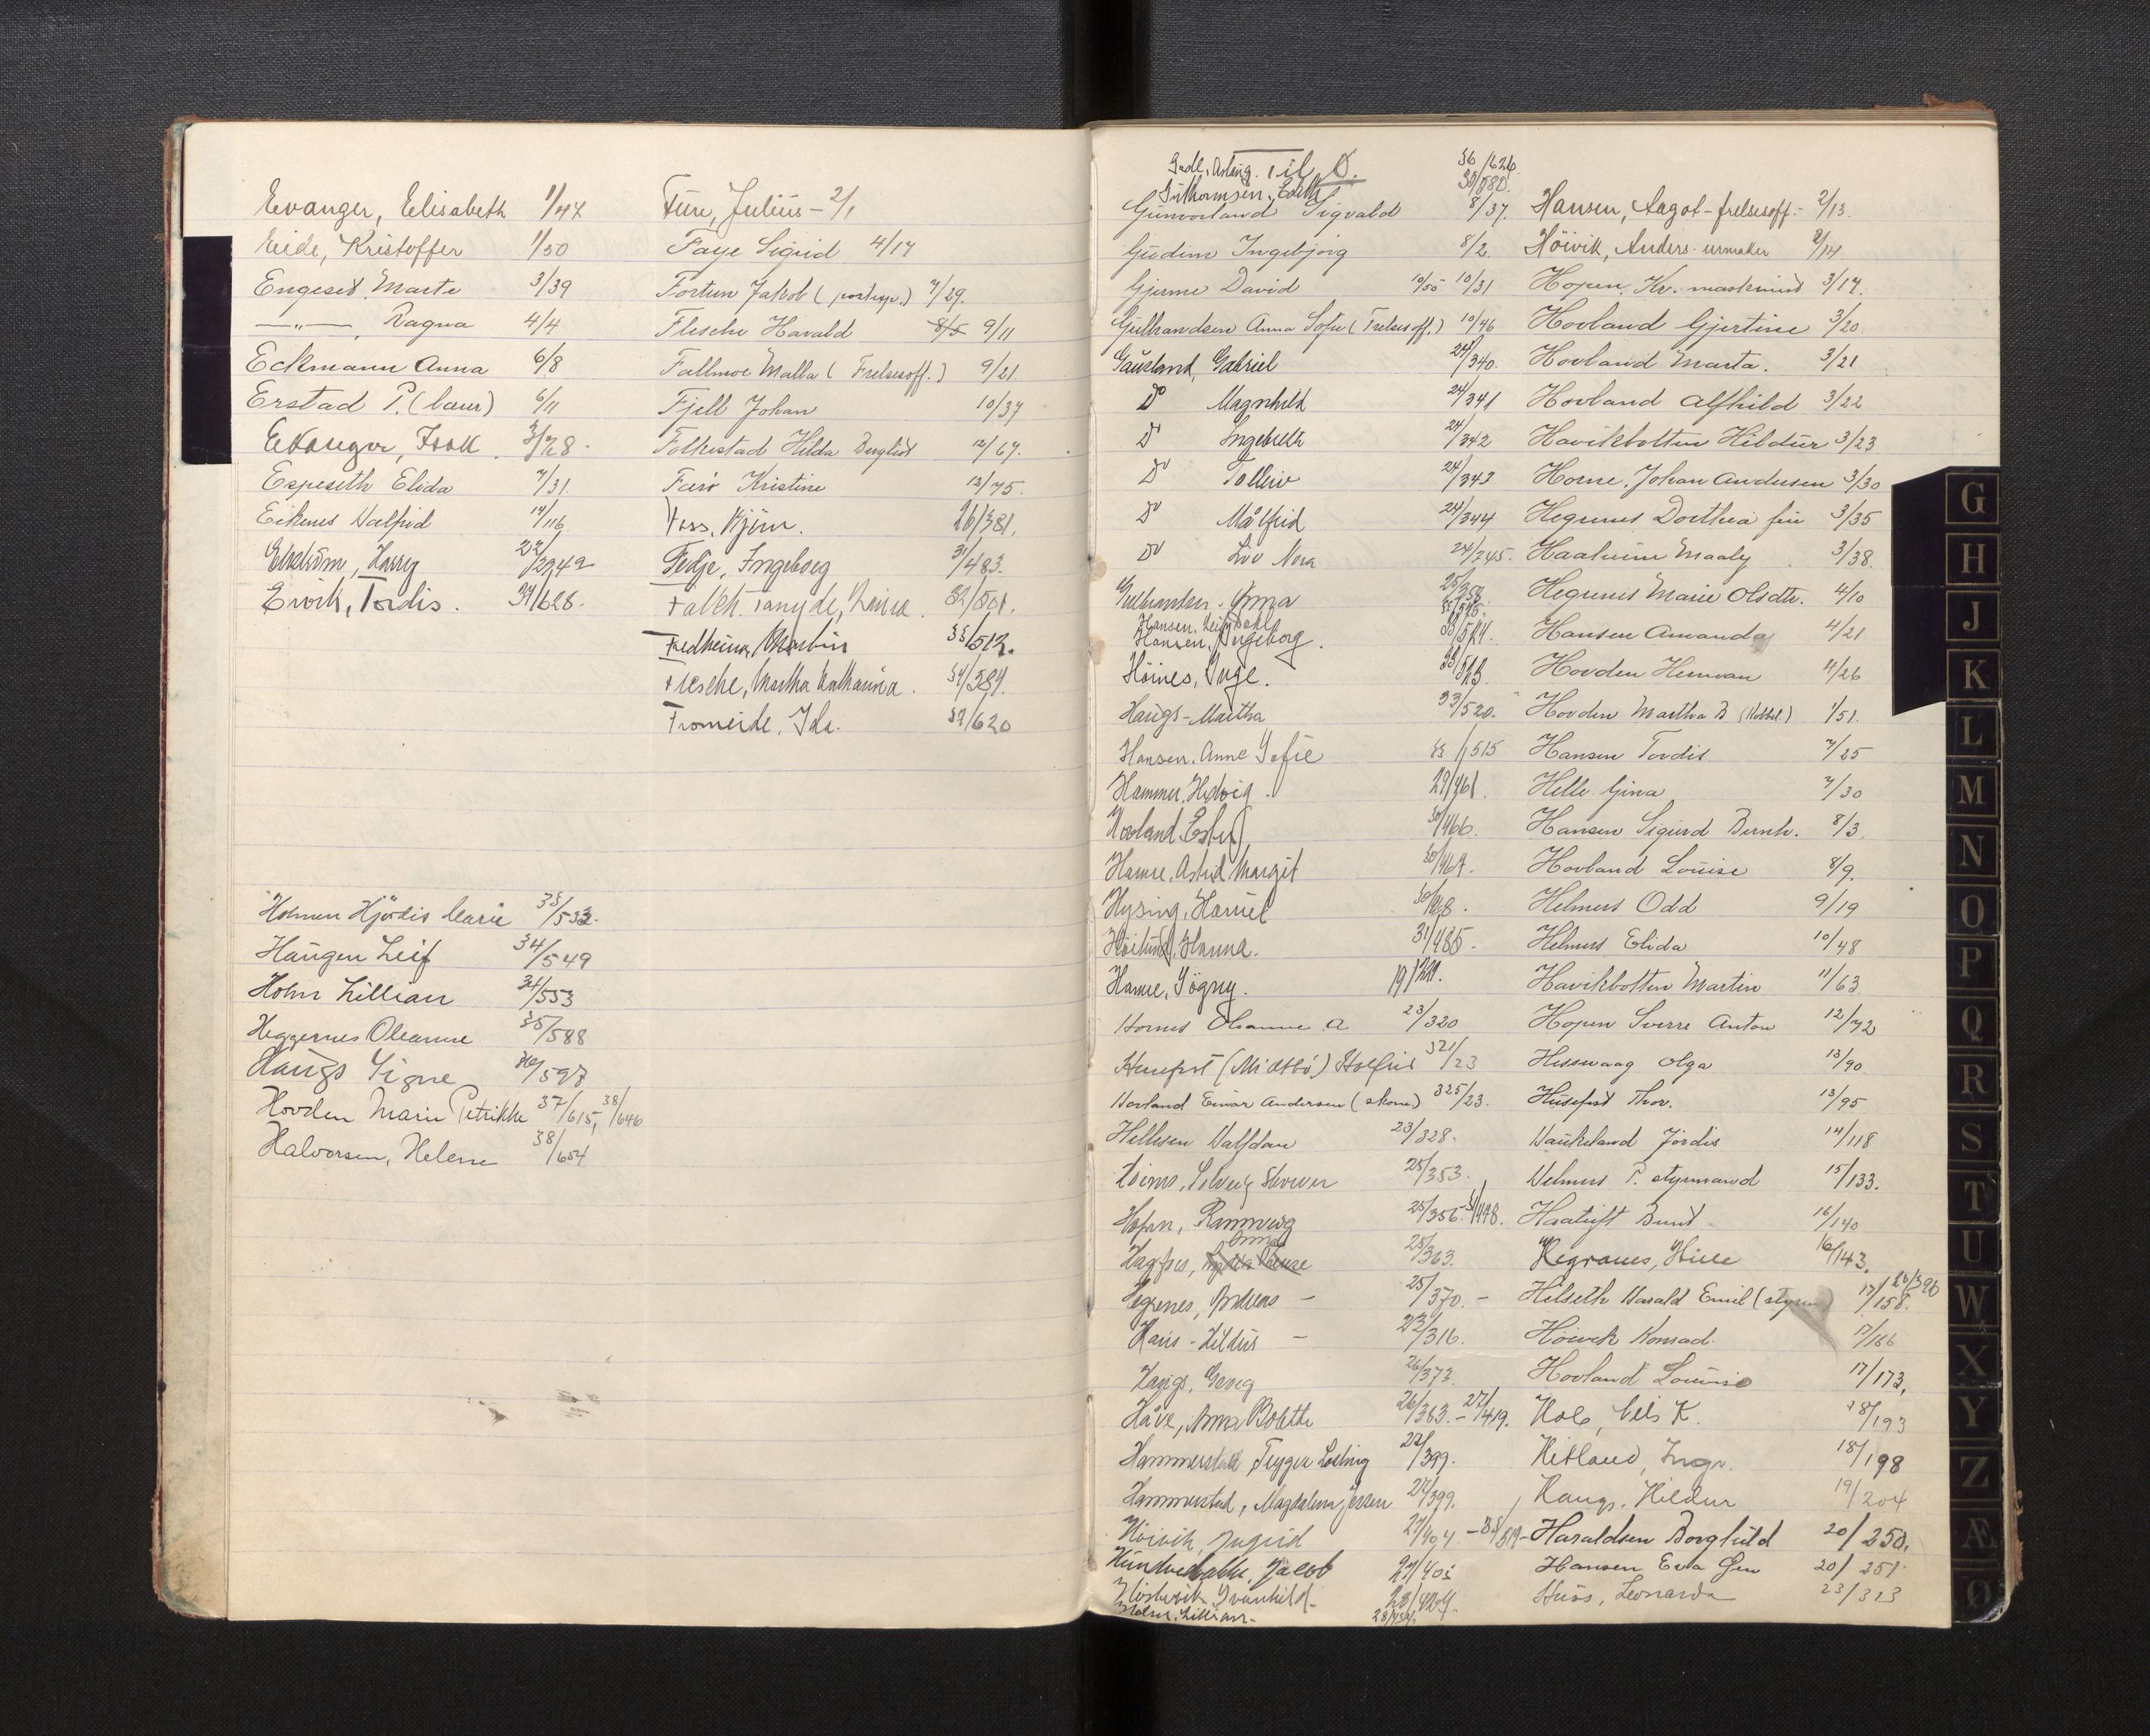 Evanger, Elisabeth 1/44
Eide, Kristoffer 1/50
Engeset Marta 3/39
—"— Ragna 4/4
Eckmann Anna 6/8
Erstad P. 6/11
Isak 3/28.
Espeseth Elida 7/31.
Eikenes 14/116
Harry
Tordis. 37/628.
Holmen Hjördis Marie 33/533.
Haugen Leif 34/549
Holm Lillian 34/553
Heggernes Oleanne 35/588
Haugs Signe 36/597
Hovden Marie Petrikke 37/615, 38/646
Halvorsen, Helene 38/654
Fure, Julius - 2/1
Faye Sigrid 4/17
Fortun Jakob 7/29.
Flesche Harald 8/5 9/11
Fallmoe Malla (Frelsesoff.) 9/21
Fjell Johan 10/37
Folkestad Hilda Bergliot 12/67.
Kristine 13/75.
Foss, Bjørn. 26/381.
Fedje, Ingeborg 31/483.
32/501.
Fredheim, Martin 33/512.
Flesche, Martha Katharina. 34/584.
Fromreide, Ida. 37/620
Til G.
36/626
35/580.
Guthormsen, Edith
Sigvald 8/37.
Gudim Ingebjørg 8/2.
Gjerme David 10/50 10/31
Gulbrandsen Anna Sofie (Frelsesoff.) 10/46
Gausland, Gabriel 24/340.
Do Magnhild 24/341
Do Ingebreth 24/342
Do Tolleiv 24/343
Do Målfrid 24/344
Do Liv Nora 24/345.
Gulbrandsen, Anna 25/358
Hansen, Leif Dahl
Hansen, Ingeborg. 33/524.
Höines, Inge. 33/523.
Haugs - Martha 33/520.
Hansen, Anne Sofie 33/515
Hammer, Hedvig. 29/461.
Hovland, Ester 30/466.
Hamre, Astrid Margit 30/467.
Hysing, Daniel 30/468.
Hanna. 31/485.
Hamre, Signy. 19/221.
Hornes Johanne A 23/320
321/23
Hovland Einar Andersen (skom) 325/23.
Hellesen Halfdan 23/328.
Solveig 25/353.
Hopen, Rannveig 25/356. 31/478.
Anna 25/363.
Hegrenes, Andreas - 25/370. -
Haus - Hildur - 23/316.
Haugs, Georg 26/373.
Håve, Anna Bolette 26/363. - 27/419.
Hammerstad Trygve Ludvig 27/399.
Hammerstad, Magdalena Jensen 27/399.
Höivik, Ingrid 27/404 - 33/519
Jacob 27/405
28/424.
Holm, Lillian -
Hansen, Aagot - frelsesoff. - 2/13.
Höivik, Anders - urmaker 2/14
Hopen, Kr. maskinist 3/17.
Hovland Gjertine 3/20
Hovland Marta. 3/21
Hovland Alfhild 3/22
Havikbotten Hildur 3/23
Horne, Johan Andersen 3/30
Hegrenes Dorthea fru 3/35
Maaly 3/38.
Hegrenes Marie Olsdtr. 4/10
Hansen Amanda 4/21
Hovden Herman 4/26
Hovden Martha B 1/51.
Hansen Tordis 7/25
Helle Gina 7/30
Hansen Sigurd Bernh. 8/3.
Hovland Louise 8/9.
Helmers Odd 9/19
Helmers Elida 10/48
Havikbotten Martin 11/63
Hopen Sverre Anton 12/72
Olga 13/90
Husefest Thor. 13/95
Haukeland Jördis 14/118
Helmers P. styrmand 15/133.
Haatuft Berit 16/140
16/143.
Hilseth Harald Emil 17/158. 26/390
Höivik Konrad. 17/166
Hovland Louise 17/173,
Nils K. 18/193
Hitland, Inga. 18/198
Haugs. Hildur 19/204
Haraldsen Borghild 20/250.
Hansen Eva 20/251
Huss, Leonarda 23/313
G
H
J
K
L
M
N
O
P
Q
R
S
T
U
W
X
Y
Z
Æ
Ø